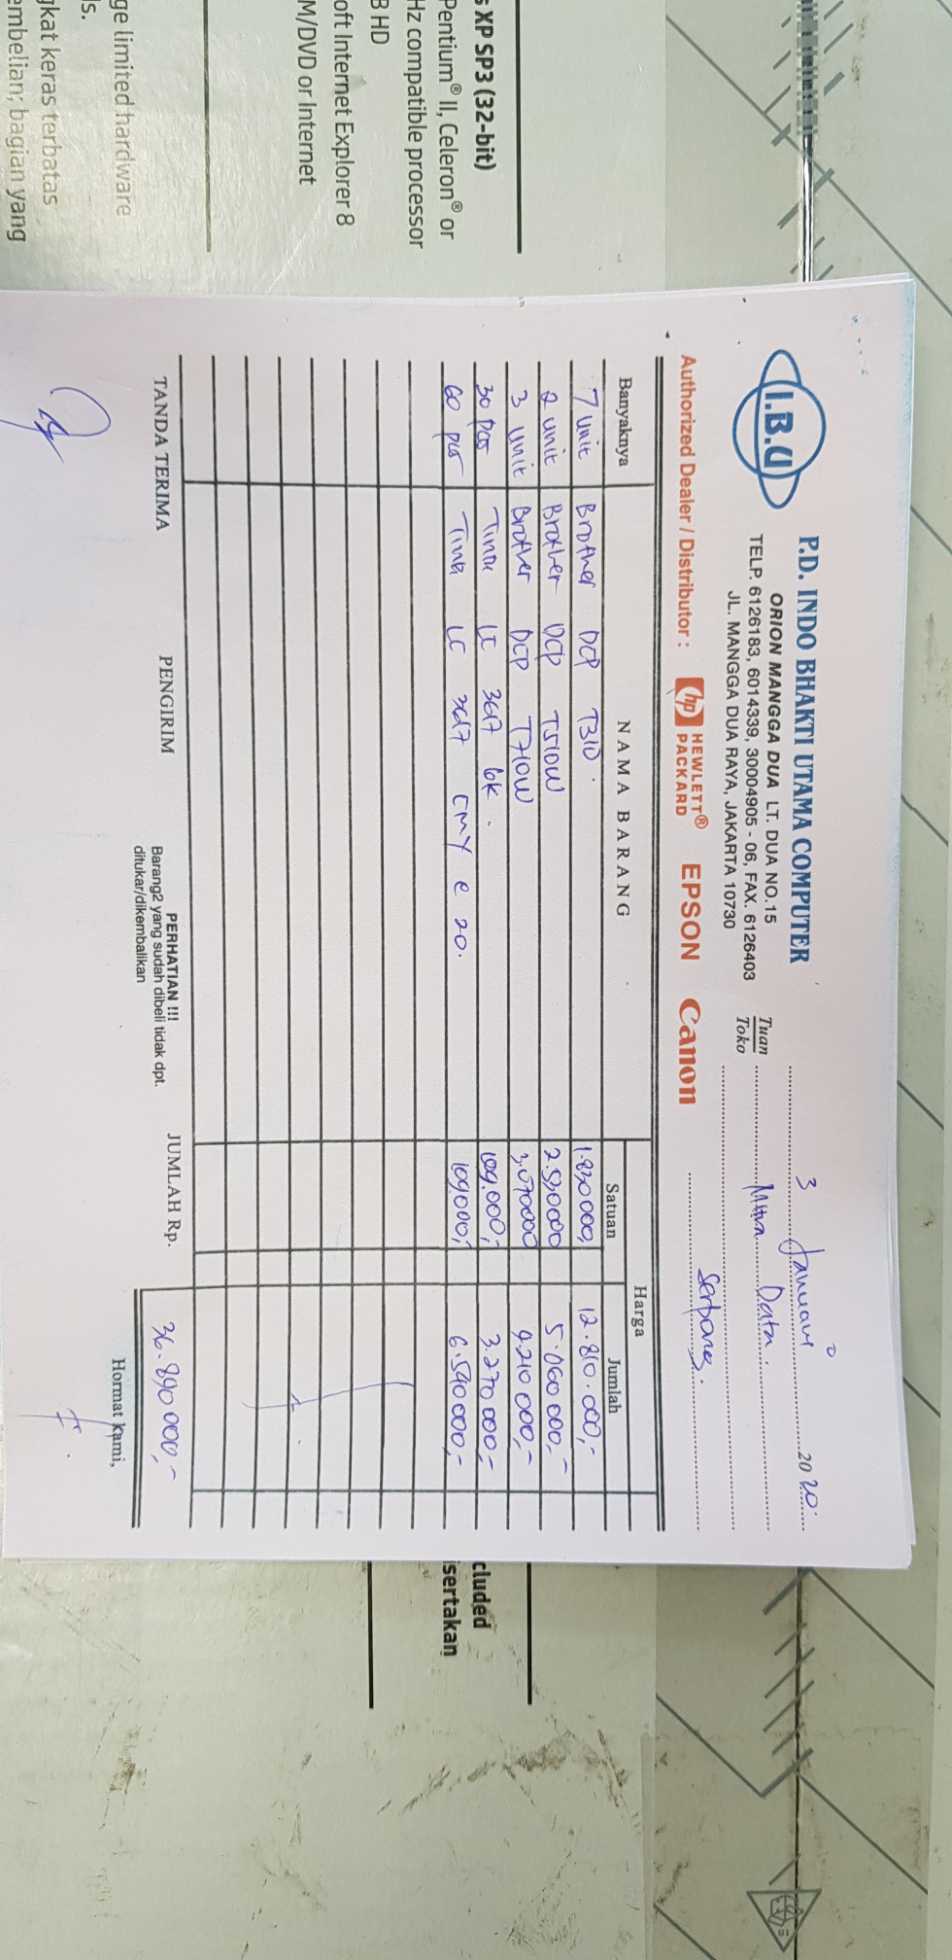 s XP SP3 (32-bit)
Pentium® II, Celeron® or
Hz compatible processor
B HD
oft Internet Explorer 8
M/DVD or Internet
ge limited hardware
ls.
gkat keras terbatas
embelian; bagian yang
I.B.U
P.D. INDO BHAKTI UTAMA COMPUTER
ORION MANGGA DUA LT. DUA NO.15
TELP. 6126183, 6014339, 30004905 - 06, FAX. 6126403
JL. MANGGA DUA RAYA, JAKARTA 10730
3 Januari 2020.
Tuan
Toko
Mitra Data.
Serpong.
Authorized Dealer / Distributor : hp HEWLETT® PACKARD EPSON Canon
Banyaknya NAMA BARANG Harga
Satuan Jumlah
7 unit Brother DCP T310. 1.830000, 12.810.000,-
2 unit Brother DCP T510W 2.530000 5.060 000,-
3 unit Brother DCP T710W 3.070000 9.210 000,-
30 pcs Tinta LC 3617 bk. 109.000,- 3.270 000,-
60 pcs Tinta LC 3617 CMY @ 20. 109.000,- 6.540 000,-
TANDA TERIMA PENGIRIM
PERHATIAN !!!
Barang2 yang sudah dibeli tidak dpt.
ditukar/dikembalikan
JUMLAH Rp. 36.890 000,-
Hormat kami,
cluded
isertakan